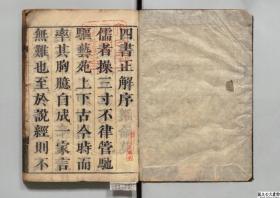 四書正解序
儒者操三寸不律管馳
驅藝苑上下古今時而
率其胸臆自成一家言
無難也至於說經則不